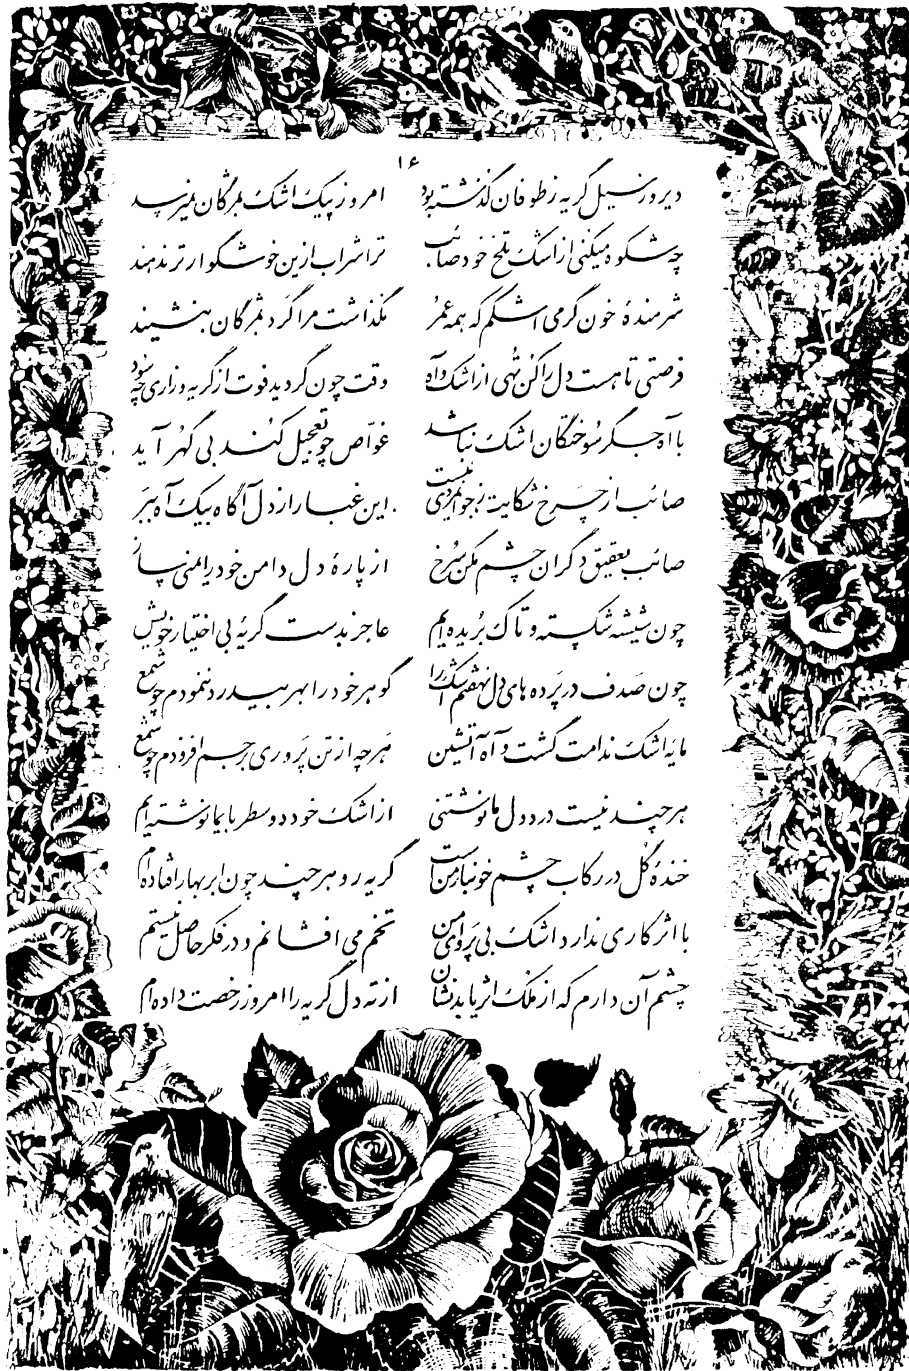 ۱۶
دیروز سیل گریه ز طوفان گذشته بود امروز پیک اشک بمژگان نمیرسد
چه شکوه میکنی از اشک تلخ خود صائب ترا شراب ازین خوشگوارتر ندهند
شرمندهٔ خون گرمی اشکم که همه عمر نگذاشت مرا گرد بمژگان بنشیند
فرصتی تا هست دل را کن تهی از اشک و آه وقت چون گردید فوت از گریه و زاری چه سود
با آه جگر سوختگان اشک نباشد غوّاص چو تعجیل کند بی گهر آید
صائب از چرخ شکایت ز جوانمردی نیست این غبار از دل آگاه بیک آه ببر
صائب بعقیق دگران چشم مکن سرخ از پارهٔ دل دامن خود را یمنی ساز
چون شیشه شکسته و تاک بریده ایم عاجز بدست گریهٔ بی اختیار خویش
چون صدف در پرده های دل نهفتم اشک را گوهر خود را بهر بیدرد ننمودم چو شمع
مایه اشک ندامت گشت و آه آتشین هر چه از تن پروری بر جسم افزودم چو شمع
هر چند نیست درد دل ما نوشتنی از اشک خود دو سطر بایما نوشته ایم
خندهٔ گل در رکاب چشم خونبار من است گریه رو هر چند چون ابر بهار افتاده ام
با اثر کاری ندارد اشک بی پروای من تخم می افشانم و در فکر حاصل نیستم
چشم آن دارم که از ملک اثر یابد نشان از ته دل گریه را امروز رخصت داده ام